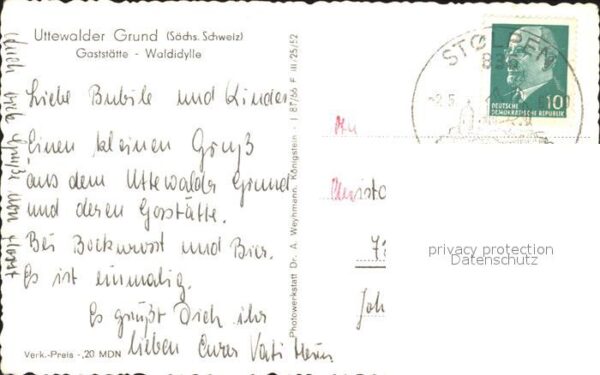 Uttewalder Grund (Sächs. Schweiz)
Gaststätte - Waldidylle
Liebe Bubile und Kinder
Einen kleinen Gruß
aus dem Uttewalder Grund
und deren Gaststätte.
Bei Bockwurst und Bier.
Es ist einmalig.
Es grüßt Dich ihr
lieben Eurer Vati
Verk.-Preis -,20 MDN
auch Grüße von Horst
Photowerkstatt Dr. A. Weyhmann, Königstein · I 87/66 F III/25/52
STOLPEN
DEUTSCHE
DEMOKRATISCHE REPUBLIK
10
An
Christo
Joh
privacy protection
Datenschutz